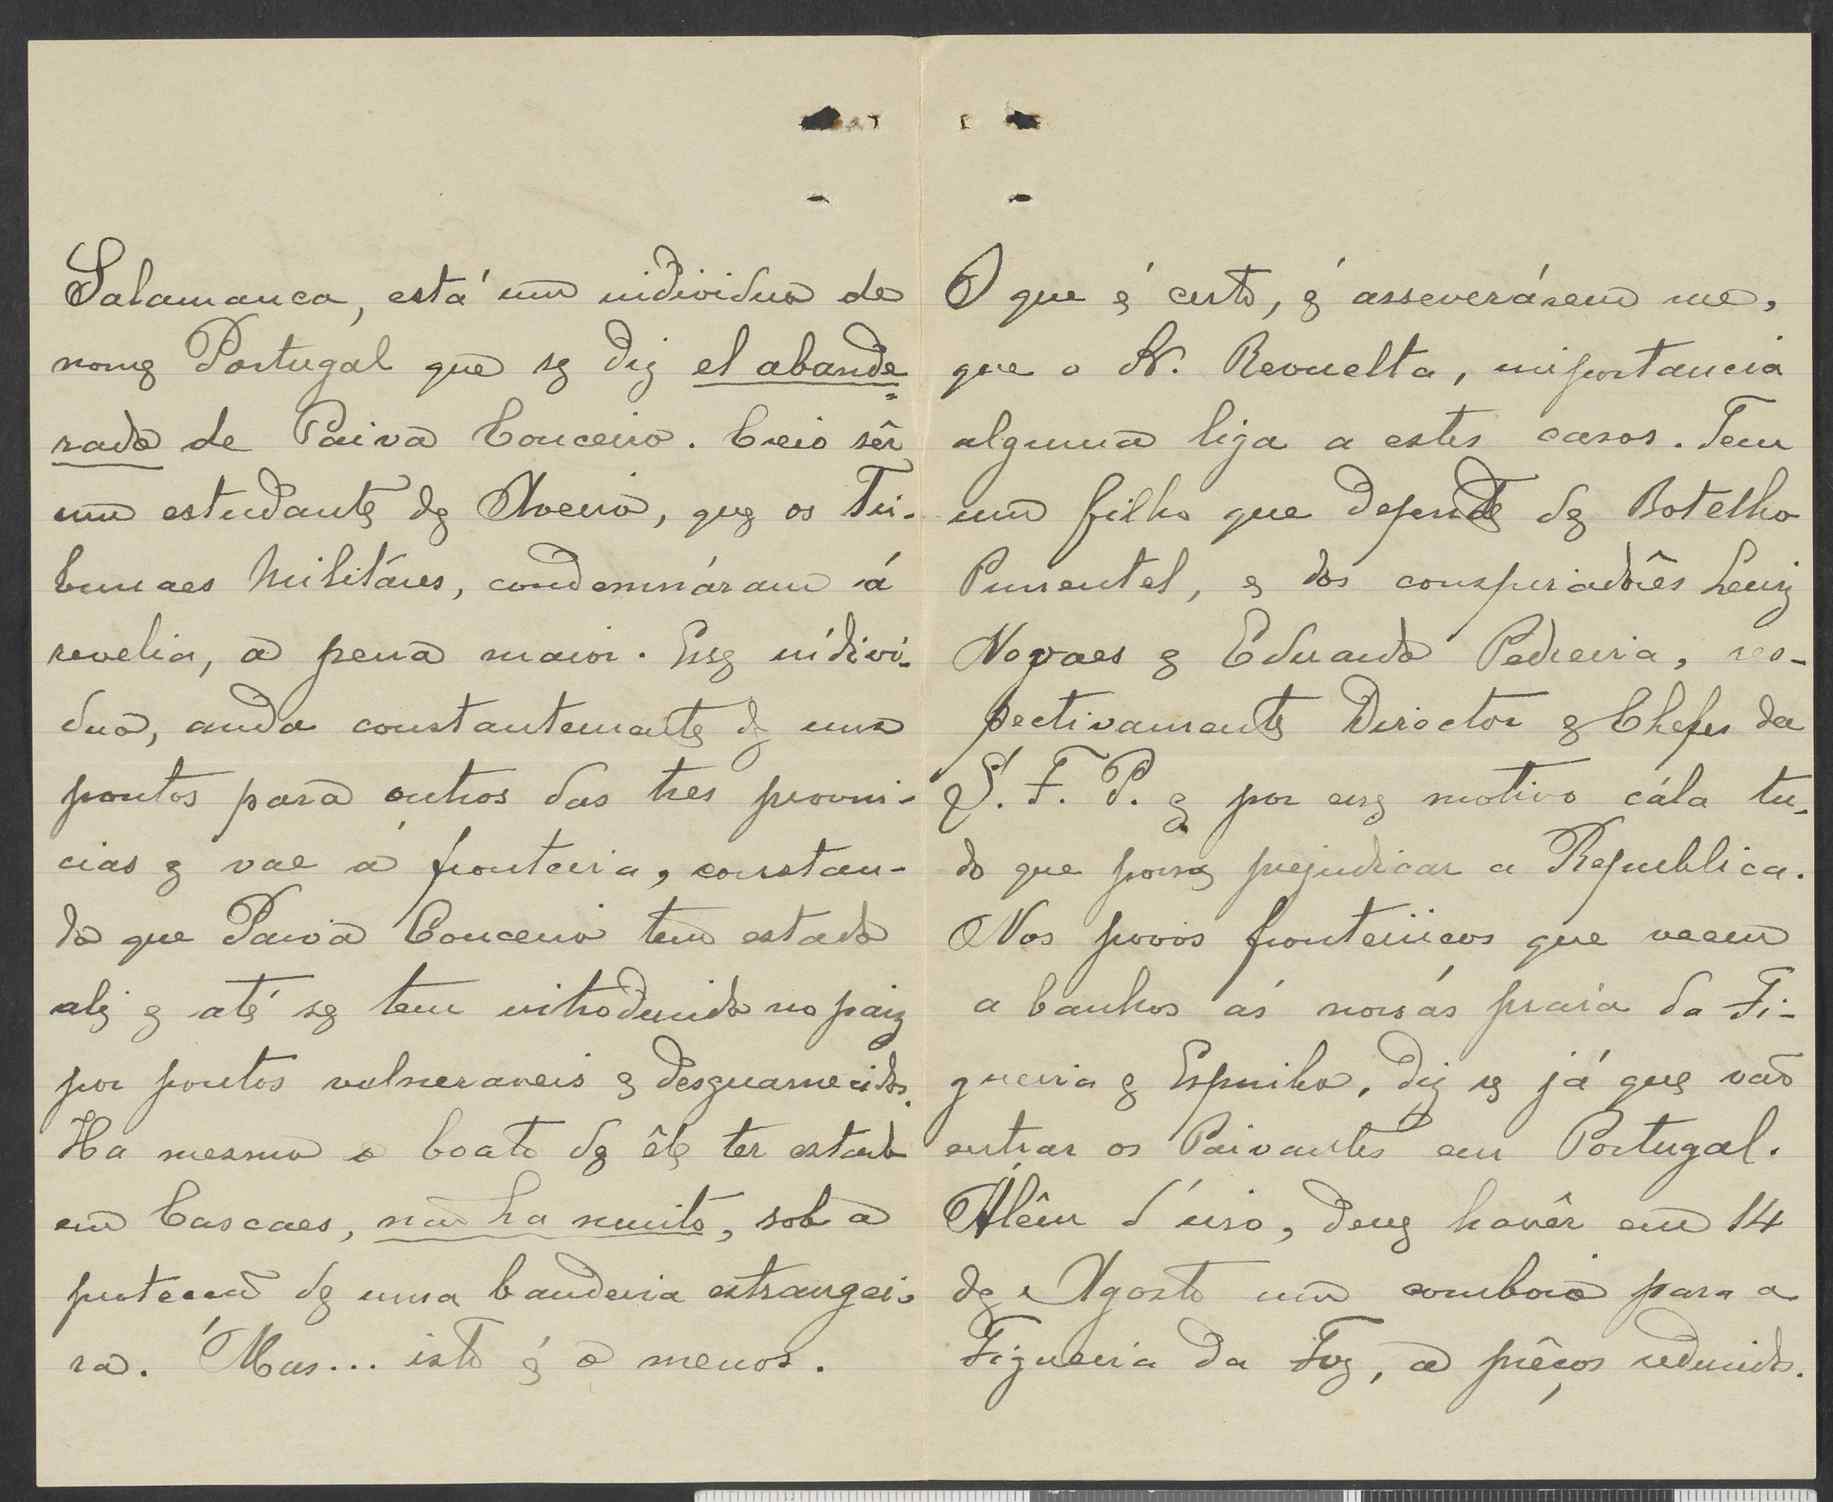 Salamanca, está um individuo de
nome Portugal que se diz el abande
rado de Paiva Couceiro. Creio sêr
um estudante de Aveiro, que os Tri-
bunaes Militáres, condemnáram á
revelia, a pena maior. Esse indivi-
duo, anda constantemente de uns
pontos para outros das tres provin-
cias e vae á fronteira, constan-
do que Paiva Couceiro tem estado
ali e até se tem introduzido no paiz
por pontos vulneraveis e desguarnecidos.
Ha mesmo o boato de êle ter estado
em Cascaes, não ha muito, sob a
proteção de uma bandeira estrangei-
ra. Mas... isto é o menos.
O que é certo, é asseverárem me,
que o Sr. Revuelta, importancia
alguma liga a estes casos. Tem
um filho que depende de Botelho
Pimentel, e dos conspiradôres Luiz
Novaes e Eduardo Pedreira, res-
pectivamente Director e Chefes da
S. F. P. e por esse motivo cála tu-
do que possa prejudicar a Republica.
Nos povos fronteiriços que veem
a banhos ás nossas praia da Fi-
gueira e Espinho, diz se já que vão
entrar os Paivantes em Portugal.
Alêm d'isso, deve havêr em 14
de Agosto um comboio para a
Figueira da Foz, a prêços reduzidos.